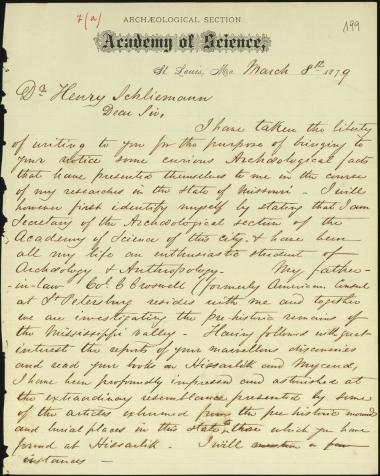 7(a)
199
ARCHÆOLOGICAL SECTION
Academy of Science,
St. Louis, Mo. March 8th 1879
Dr Henry Schliemann
Dear Sir,
I have taken the liberty
of writing to you for the purpose of bringing to
your notice some curious Archæological facts
that have presented themselves to me in the course
of my researches in the state of Missouri - I will
however first identify myself by stating that I am
Secretary of the Archæological section of the
Academy of Science of this city, & have been
all my life an enthusiastic student of
Archæology & Anthropology - My father-
in-law Col. C Croswell (formerly American Consul
at St Petersburg resides with me and together
we are investigating the pre-historic remains of
the Mississippi valley - Having followed with great
interest the reports of your marvellous discoveries
and read your books on Hissarlik and Mycenæ,
I have been profoundly impressed and astonished at
the extraordinary resemblance presented by some
of the articles exhumed from the pre historic mounds
and burial places in this state to those which you have
found at Hissarlik - I will mention a few
instances -